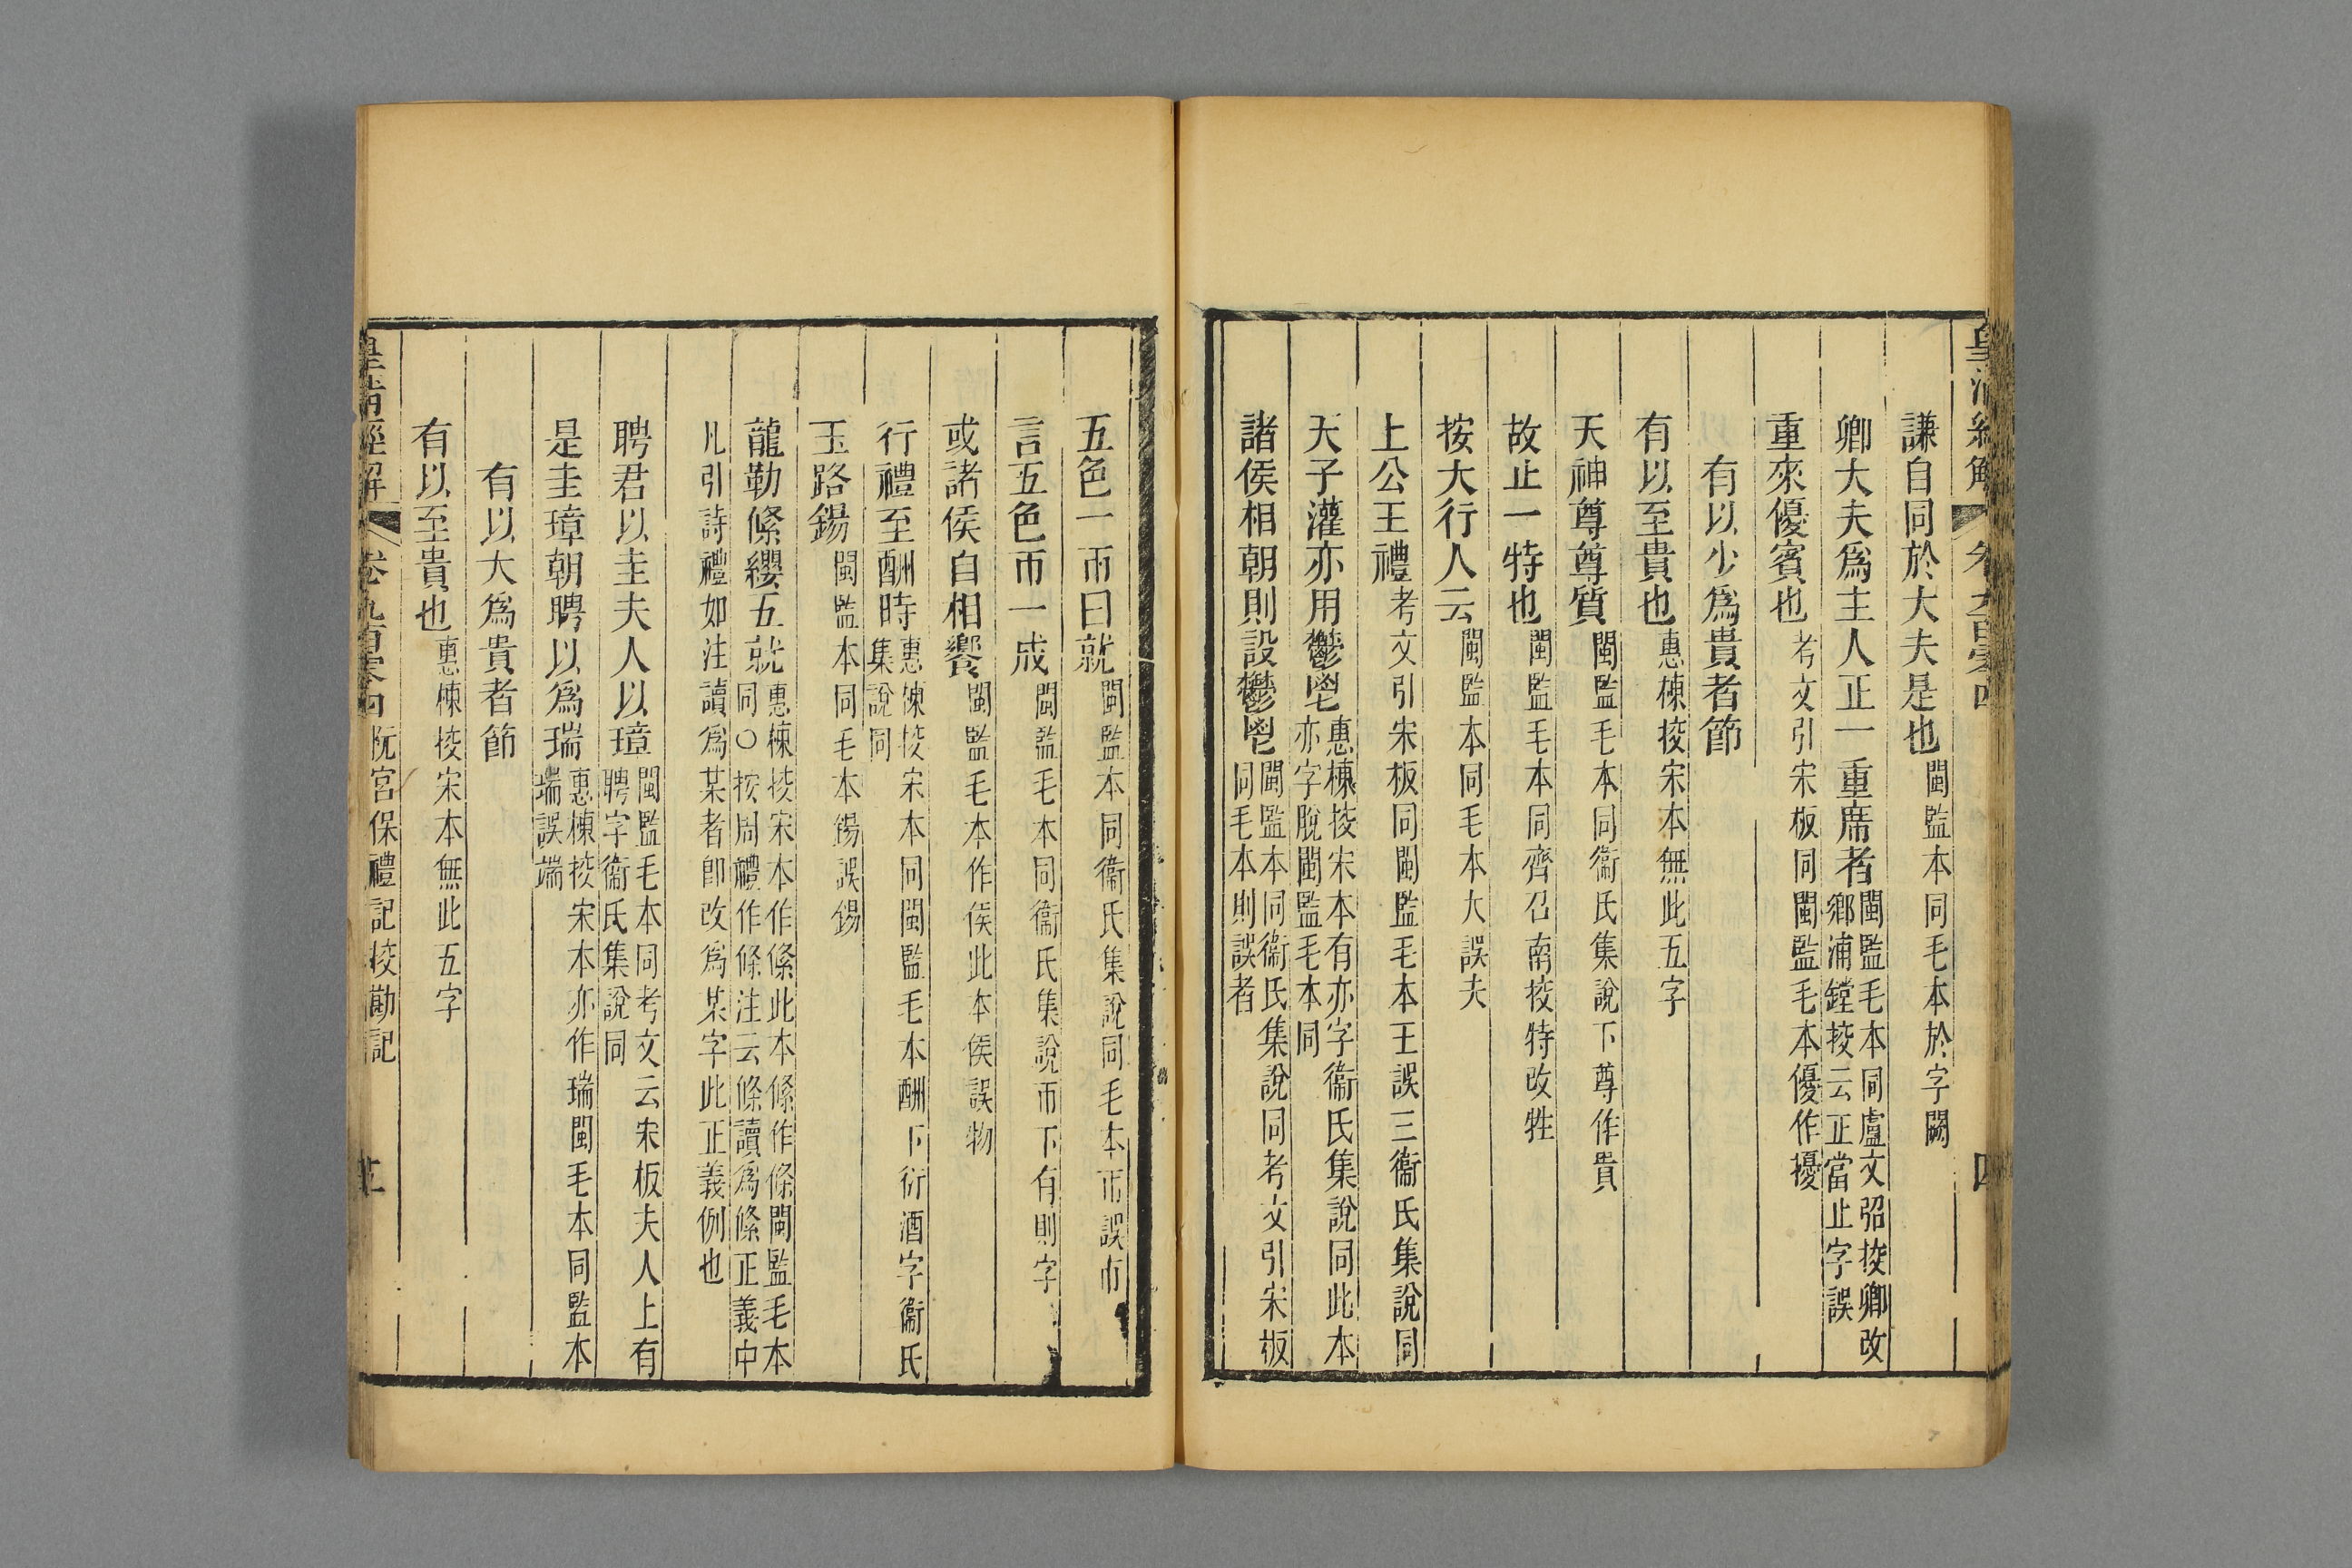 謙自同於大夫是也閩監本同毛本於字闕
卿大夫爲主人正一重席者閩監毛本同盧文弨挍卿改鄉浦鏜挍云正當止字誤
重來優賓也考文引宋板同閩監毛本優作擾
有以少爲貴者節
有以至貴也惠棟挍宋本無此五字
天神尊尊質閩監毛本同衞氏集說下尊作貴
故止一特也閩監毛本同齊召南挍特改牲
按大行人云閩監本同毛本大誤夫
上公王禮考文引宋板同閩監毛本王誤三衞氏集說同
天子灌亦用鬱鬯惠棟挍宋本有亦字衞氏集說同此本亦字脫閩監毛本同
諸侯相朝則設鬱鬯閩監本同衞氏集說同考文引宋板同毛本則誤者
五色一帀曰就閩監本同衞氏集說同毛本帀誤巿
言五色帀一成閩監毛本同衞氏集說帀下有則字
或諸侯自相饗閩監毛本作侯此本侯誤物
行禮至酬時惠棟挍宋本同閩監毛本酬下衍酒字衞氏集說同
玉路鍚閩監本同毛本鍚誤錫
龍勒絛纓五就惠棟挍宋本作絛此本絛作條閩監毛本同○按周禮作條注云條讀爲絛正義中
凡引詩禮如注讀爲某者卽改爲某字此正義例也
聘君以圭夫人以璋閩監毛本同考文云宋板夫人上有聘字衞氏集說同
是圭璋朝聘以爲瑞惠棟挍宋本亦作瑞閩毛本同監本瑞誤端
有以大爲貴者節
有以至貴也惠棟挍宋本無此五字
皇淸經解 卷九百零四 阮宮保禮記挍勘記